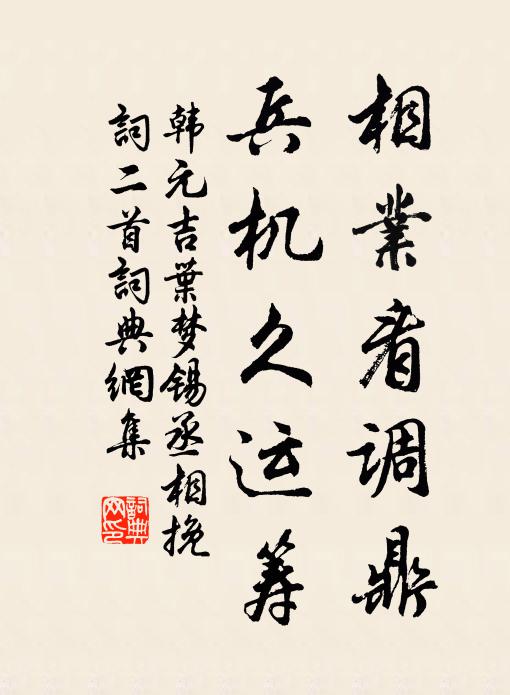 相業看调鼎
兵机久运筹
韩元吉葉梦锡丞相挽
詞二首詞典網集
詞典网印